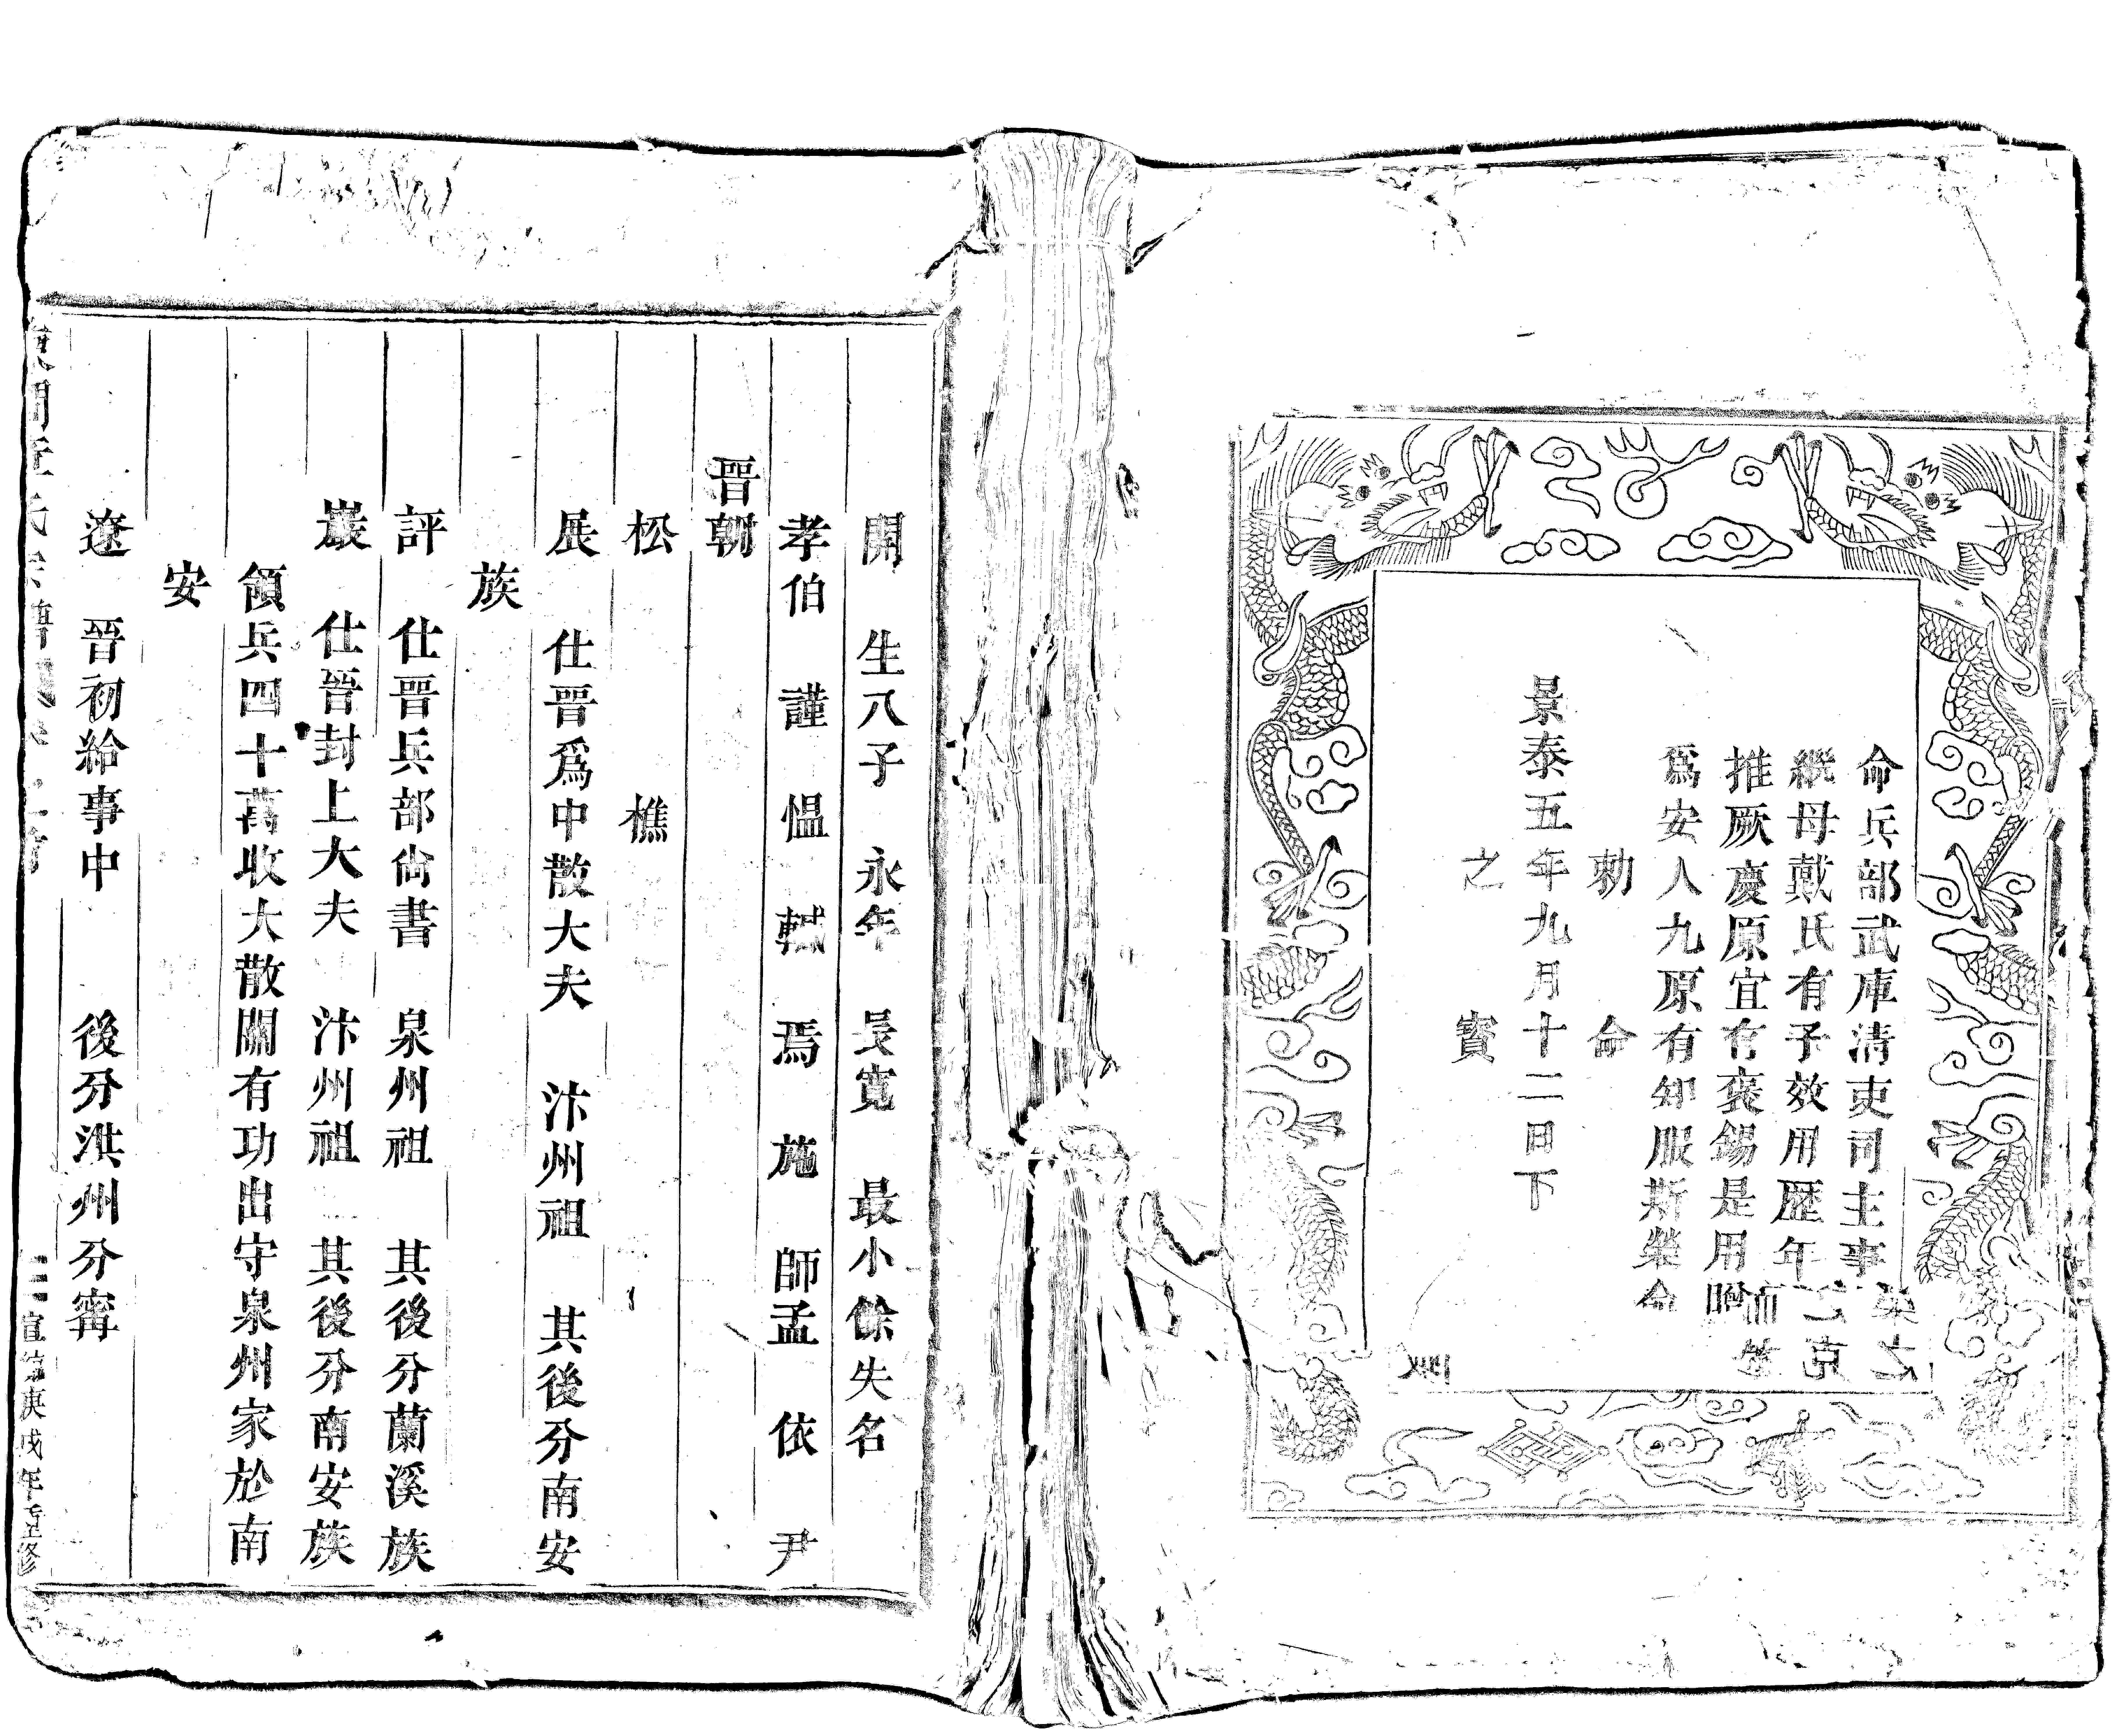 命兵部武庫清吏司主事
繼母戴氏有子效用歷年
推厥慶原宜有褒錫是用贈
爲安人九原有知服斯榮命
勅命
景泰五年九月十二日下
之寶
開 生八子 永年 長寬 最小餘失名
孝伯 謹 愠 軾 焉 施 師孟 依 尹
晋朝
松 樵
展 仕晋爲中散大夫 汴州祖 其後分南安
族
評 仕晋兵部尚書 泉州祖 其後分蘭溪族
巖 仕晉封上大夫 汴州祖 其後分南安族
領兵四十萬收大散關有功出守泉州家於南
安
遼 晉初給事中 後分洪州分寗
庚戌年重修